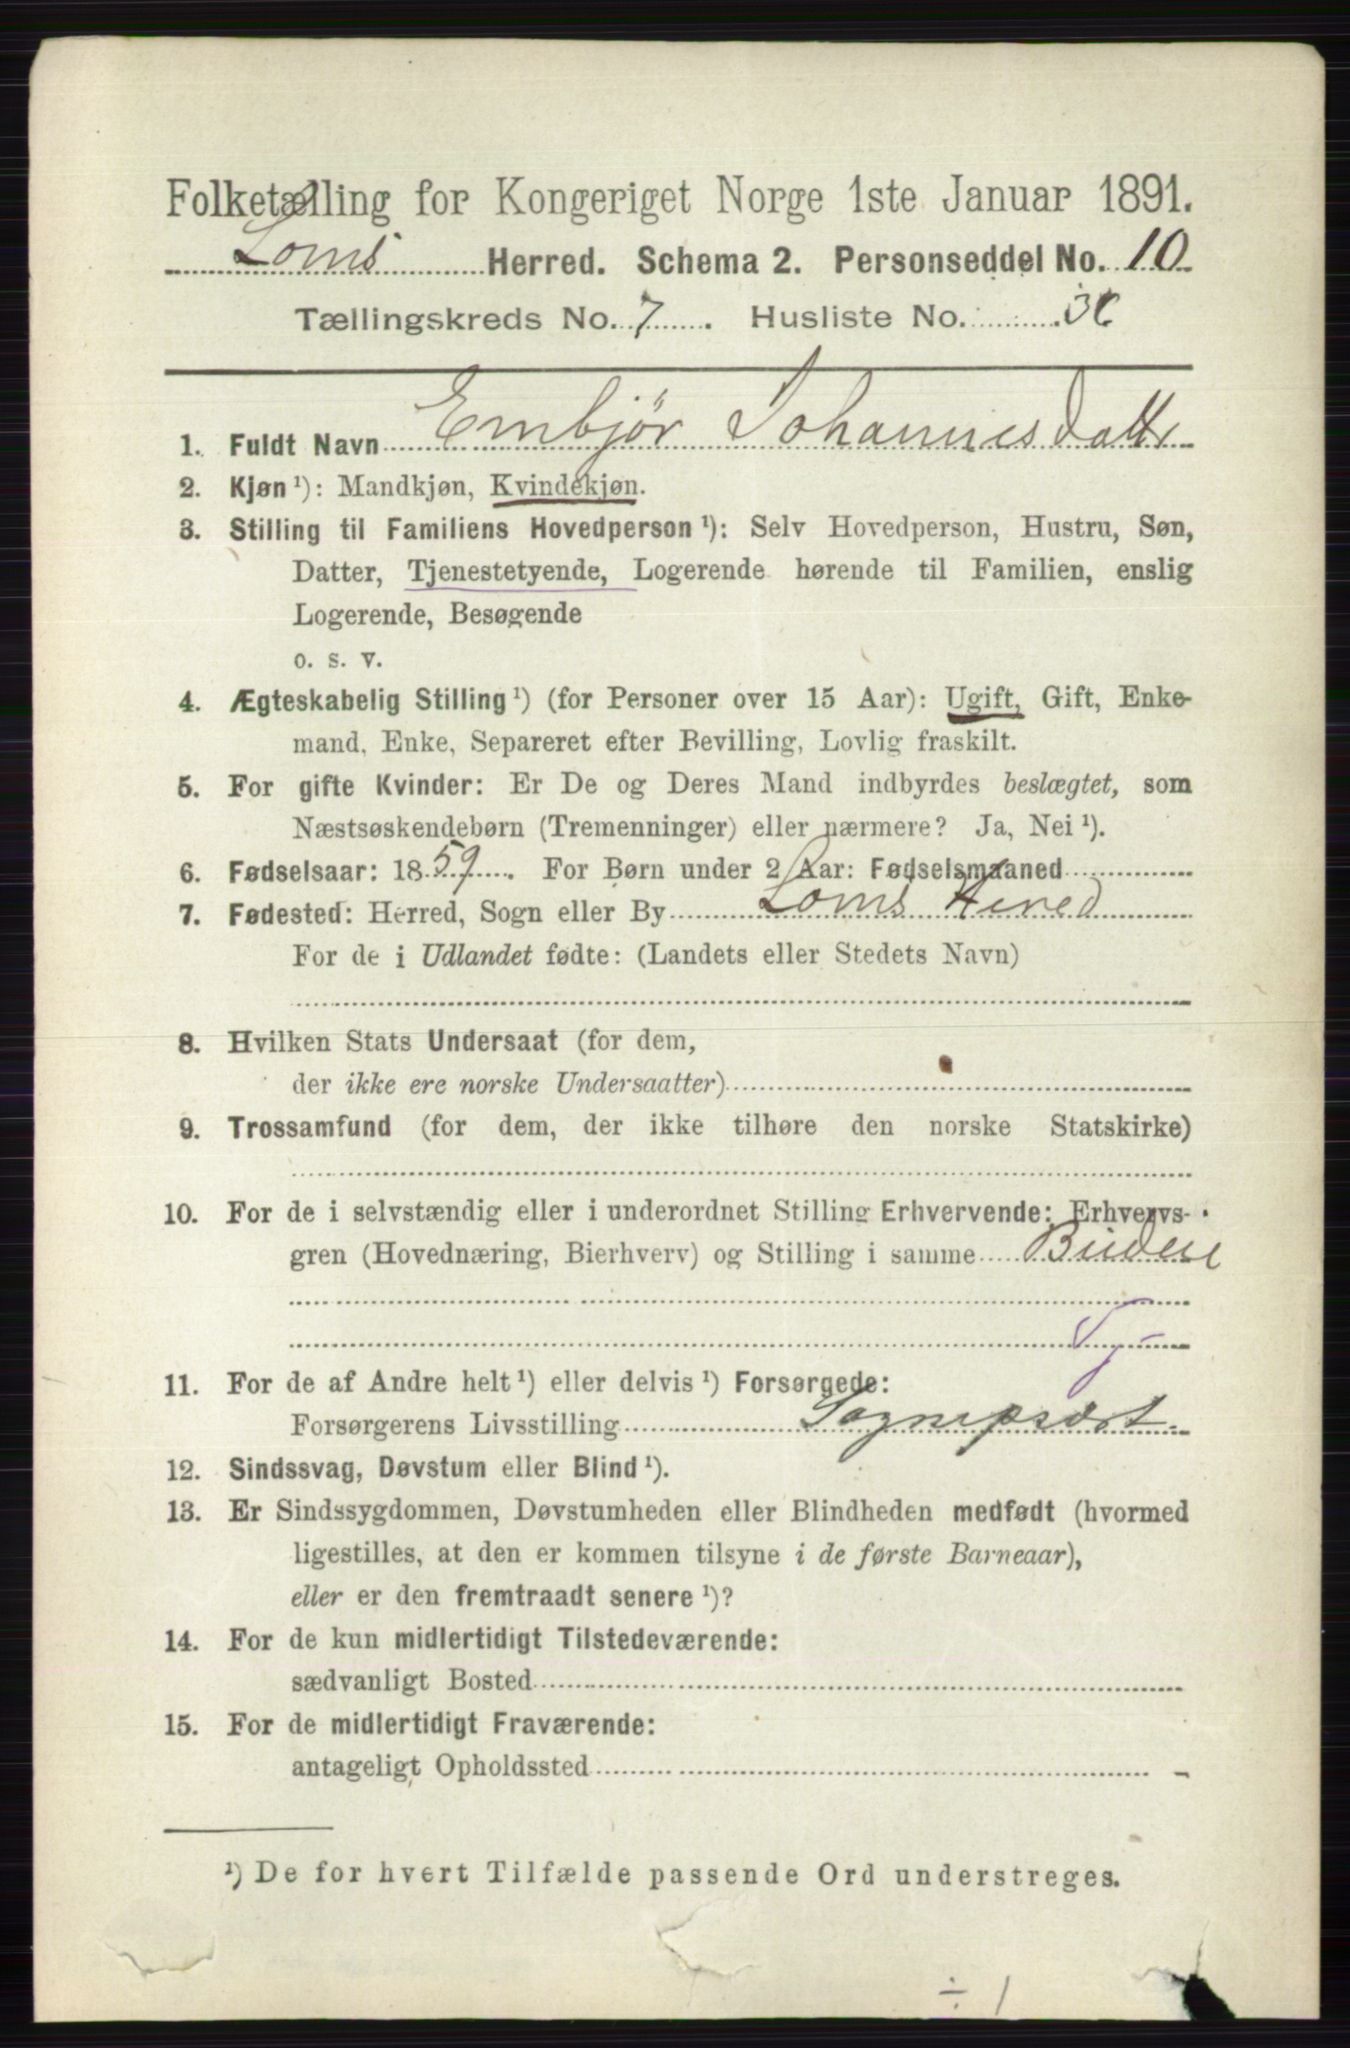 Folketælling for Kongeriget Norge 1ste Januar 1891.
Loms Herred. Schema 2. Personseddel No. 10
Tællingskreds No. 7. Husliste No.
1. Fuldt Navn Embjør Johannesdatter
2. Kjøn ¹): Mandkjøn, Kvindekjøn.
3. Stilling til Familiens Hovedperson ¹): Selv Hovedperson, Hustru, Søn,
Datter, Tjenestetyende, Logerende hørende til Familien, enslig
Logerende, Besøgende
o. s. v.
4. Ægteskabelig Stilling ¹) (for Personer over 15 Aar): Ugift, Gift, Enke-
mand, Enke, Separeret efter Bevilling, Lovlig fraskilt.
5. For gifte Kvinder: Er De og Deres Mand indbyrdes beslægtet, som
Næstsøskendebørn (Tremenninger) eller nærmere? Ja, Nei ¹).
6. Fødselsaar: 1859. For Børn under 2 Aar: Fødselsmaaned
7. Fødested: Herred, Sogn eller By Loms Herred
For de i Udlandet fødte: (Landets eller Stedets Navn)
8. Hvilken Stats Undersaat (for dem,
der ikke ere norske Undersaatter)
9. Trossamfund (for dem, der ikke tilhøre den norske Statskirke)
10. For de i selvstændig eller i underordnet Stilling Erhvervende: Erhvervs-
gren (Hovednæring, Bierhverv) og Stilling i samme Budeie
11. For de af Andre helt ¹) eller delvis ¹) Forsørgede:
Forsørgerens Livsstilling Sogneprest
12. Sindssvag, Døvstum eller Blind ¹).
13. Er Sindssygdommen, Døvstumheden eller Blindheden medfødt (hvormed
ligestilles, at den er kommen tilsyne i de første Barneaar),
eller er den fremtraadt senere ¹)?
14. For de kun midlertidigt Tilstedeværende:
sædvanligt Bosted
15. For de midlertidigt Fraværende:
antageligt Opholdssted -
¹) De for hvert Tilfælde passende Ord understreges.
÷ 1